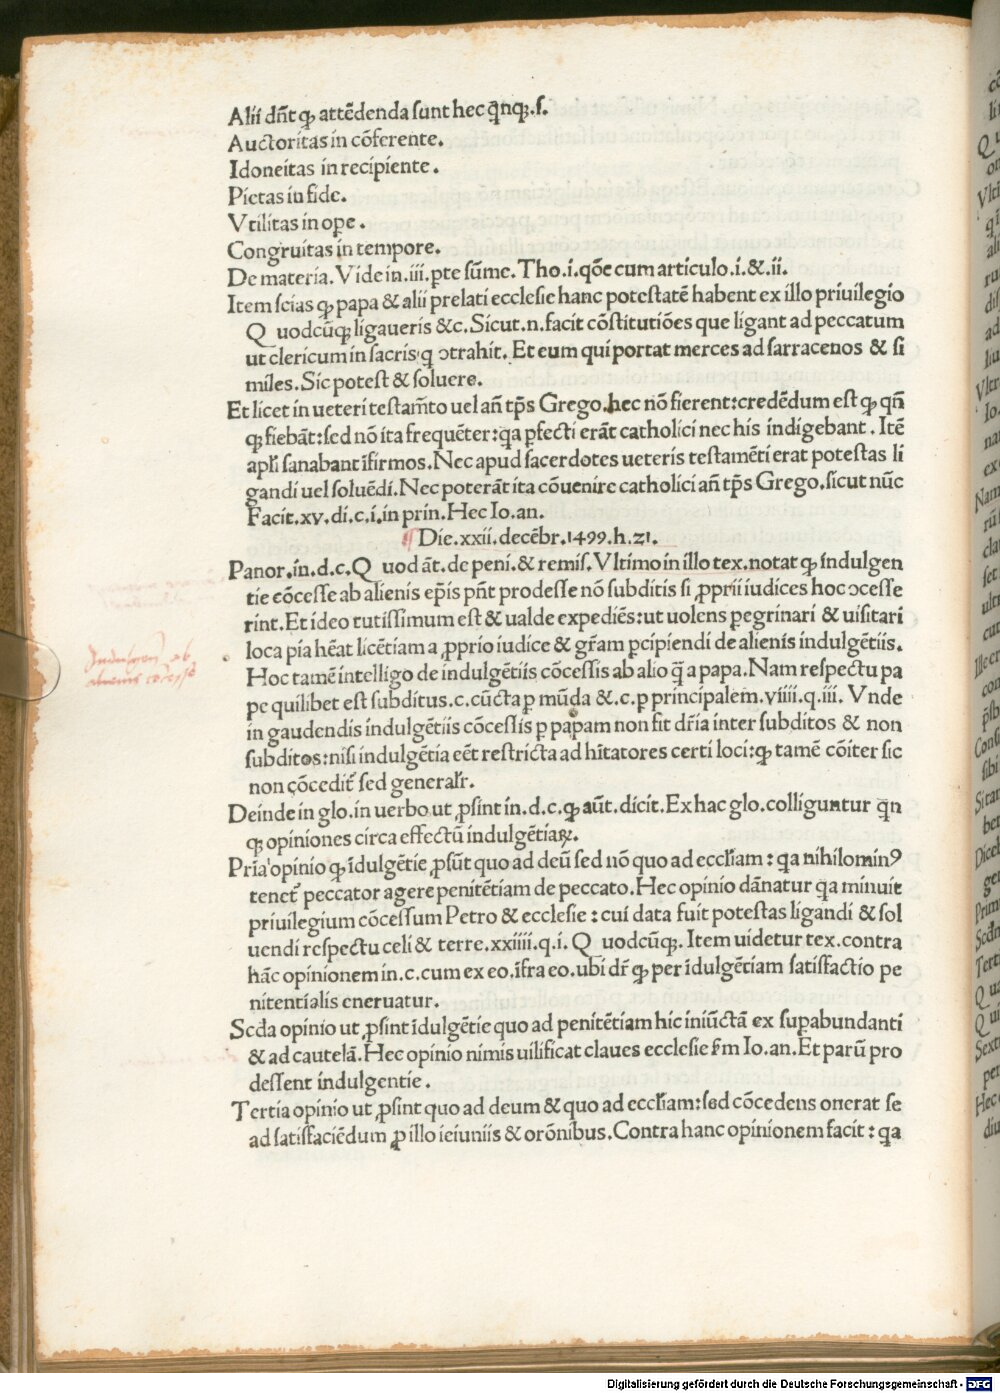 Alii dn̄t ꝙ attēdenda sunt hec qn̄qꝫ.s.
Auctoritas in cōferente.
Idoneitas in recipiente.
Pietas in fide.
Vtilitas in ope.
Congruitas in tempore.
De materia. Vide in.iii.pte sūme. Tho.i.qōe cum articulo.i.&.ii.
Item scias ꝙ papa & alii prelati ecclesie hanc potestatē habent ex illo priuilegio
Q uodcūqꝫ ligaueris &c. Sicut.n.facit cōstitutiōes que ligant ad peccatum
ut clericum in sacris q ↄtrahit. Et eum qui portat merces ad sarracenos & si
miles. Sic potest & soluere.
Et licet in ueteri testam̄to uel an̄ tp̄s Grego.hec nō fierent:credēdum est ꝙ qn̄
qꝫ fiebāt:sed nō ita frequēter:qa pfecti erāt catholici nec his indigebant. Itē
apli sanabant īfirmos. Nec apud sacerdotes ueteris testamēti erat potestas li
gandi uel soluēdi. Nec poterāt ita cōuenire catholici an̄ tp̄s Grego.sicut nūc
Facit.xv.di.c.i.in prin. Hec Io.an.
¶ Die.xxii.decēbr.1499.h.21.
Panor.in.d.c.Q uod āt.de peni.& remis. Vltimo in illo tex.notat ꝙ indulgen
tie cōcesse ab alienis ep̄is pn̄t prodesse nō subditis si ꝓprii iudices hoc ↄcesse
rint. Et ideo tutissimum est & ualde expediēs:ut uolens pegrinari & uisitari
loca pia hēat licētiam a ꝓprio iudice & gr̄am pcipiendi de alienis indulgētiis.
Indulgen ab
alienis co͞cesse
Hoc tamē intelligo de indulgētiis cōcessis ab alio q̄ a papa. Nam respectu pa
pe quilibet est subditus.c.cūcta p mūda &.c.p principalem.viiii.q.iii. Vnde
in gaudendis indulgētiis cōcessis p papam non fit dr̄ia inter subditos & non
subditos:nisi indulgētia eēt restricta ad hītatores certi loci:ꝙ tamē cōiter sic
non cōcedit̄ sed generalr.
Deinde in glo.in uerbo ut ꝓsint in.d.c.ꝙ aūt.dicit. Ex hac glo.colliguntur qn̄
qꝫ opiniones circa effectū indulgētiaꝝ.
Prīa opinio ꝙ īdulgētie ꝓsūt quo ad deū sed nō quo ad eccliam:qa nihilominꝰ
tenet̄ peccator agere penitētiam de peccato. Hec opinio dānatur qa minuit
priuilegium cōcessum Petro & ecclesie:cui data fuit potestas ligandi & sol
uendi respectu celi & terre.xxiiii.q.i.Q uodcūqꝫ. Item uidetur tex.contra
hāc opinionem in.c.cum ex eo.īfra eo.ubi dr̄ ꝙ per īdulgētiam satisfactio pe
nitentialis eneruatur.
Scda opinio ut ꝓsint īdulgētie quo ad penitētiam hic iniūctā ex supabundanti
& ad cautelā. Hec opinio nimis uilificat claues ecclesie s̄m Io.an. Et parū pro
dessent indulgentie.
Tertia opinio ut ꝓsint quo ad deum & quo ad eccliam:sed cōcedens onerat se
ad satisfaciēdum ꝓ illo ieiuniis & orōnibus. Contra hanc opinionem facit:qa
Digitalisierung gefördert durch die Deutsche Forschungsgemeinschaft - DFG